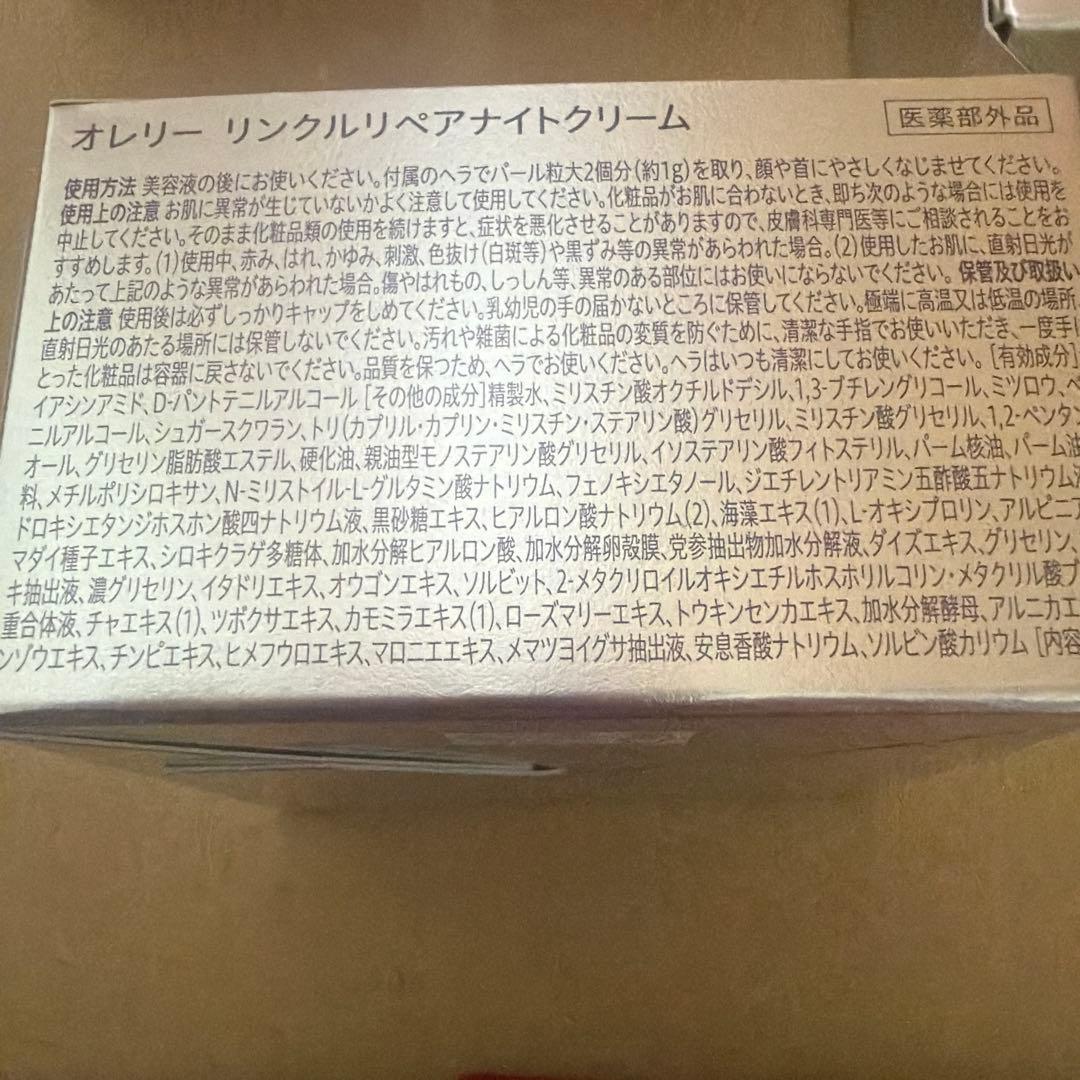 オレリー リンクルリペアナイトクリーム
医薬部外品
使用方法 美容液の後にお使いください。付属のヘラでパール粒大2個分(約1g)を取り、顔や首にやさしくなじませてください。
使用上の注意 お肌に異常が生じていないかよく注意して使用してください。化粧品がお肌に合わないとき、即ち次のような場合には使用を
中止してください。そのまま化粧品類の使用を続けますと、症状を悪化させることがありますので、皮膚科専門医等にご相談されることをお
すすめします。(1)使用中、赤み、はれ、かゆみ、刺激、色抜け(白斑等)や黒ずみ等の異常があらわれた場合。(2)使用したお肌に、直射日光が
あたって上記のような異常があらわれた場合。傷やはれもの、しっしん等、異常のある部位にはお使いにならないでください。 保管及び取扱い
上の注意 使用後は必ずしっかりキャップをしめてください。乳幼児の手の届かないところに保管してください。極端に高温又は低温の場所、
直射日光のあたる場所には保管しないでください。汚れや雑菌による化粧品の変質を防ぐために、清潔な手指でお使いいただき、一度手に
とった化粧品は容器に戻さないでください。品質を保つため、ヘラでお使いください。ヘラはいつも清潔にしてお使いください。 [有効成分]
イアシンアミド、D-パントテニルアルコール [その他の成分]精製水、ミリスチン酸オクチルドデシル、1,3-ブチレングリコール、ミツロウ、ベ
ニルアルコール、シュガースクワラン、トリ(カプリル・カプリン・ミリスチン・ステアリン酸)グリセリル、ミリスチン酸グリセリル、1,2-ペンタン
オール、グリセリン脂肪酸エステル、硬化油、親油型モノステアリン酸グリセリル、イソステアリン酸フィトステリル、パーム核油、パーム油
料、メチルポリシロキサン、N-ミリストイル-L-グルタミン酸ナトリウム、フェノキシエタノール、ジエチレントリアミン五酢酸五ナトリウム液
ドロキシエタンジホスホン酸四ナトリウム液、黒砂糖エキス、ヒアルロン酸ナトリウム(2)、海藻エキス(1)、L-オキシプロリン、アルピニア
マダイ種子エキス、シロキクラゲ多糖体、加水分解ヒアルロン酸、加水分解卵殻膜、党参抽出物加水分解液、ダイズエキス、グリセリン、
キ抽出液、濃グリセリン、イタドリエキス、オウゴンエキス、ソルビット、2-メタクリロイルオキシエチルホスホリルコリン・メタクリル酸ブ
重合体液、チャエキス(1)、ツボクサエキス、カモミラエキス(1)、ローズマリーエキス、トウキンセンカエキス、加水分解酵母、アルニカエ
ンゾウエキス、チンピエキス、ヒメフウロエキス、マロニエエキス、メマツヨイグサ抽出液、安息香酸ナトリウム、ソルビン酸カリウム [内容